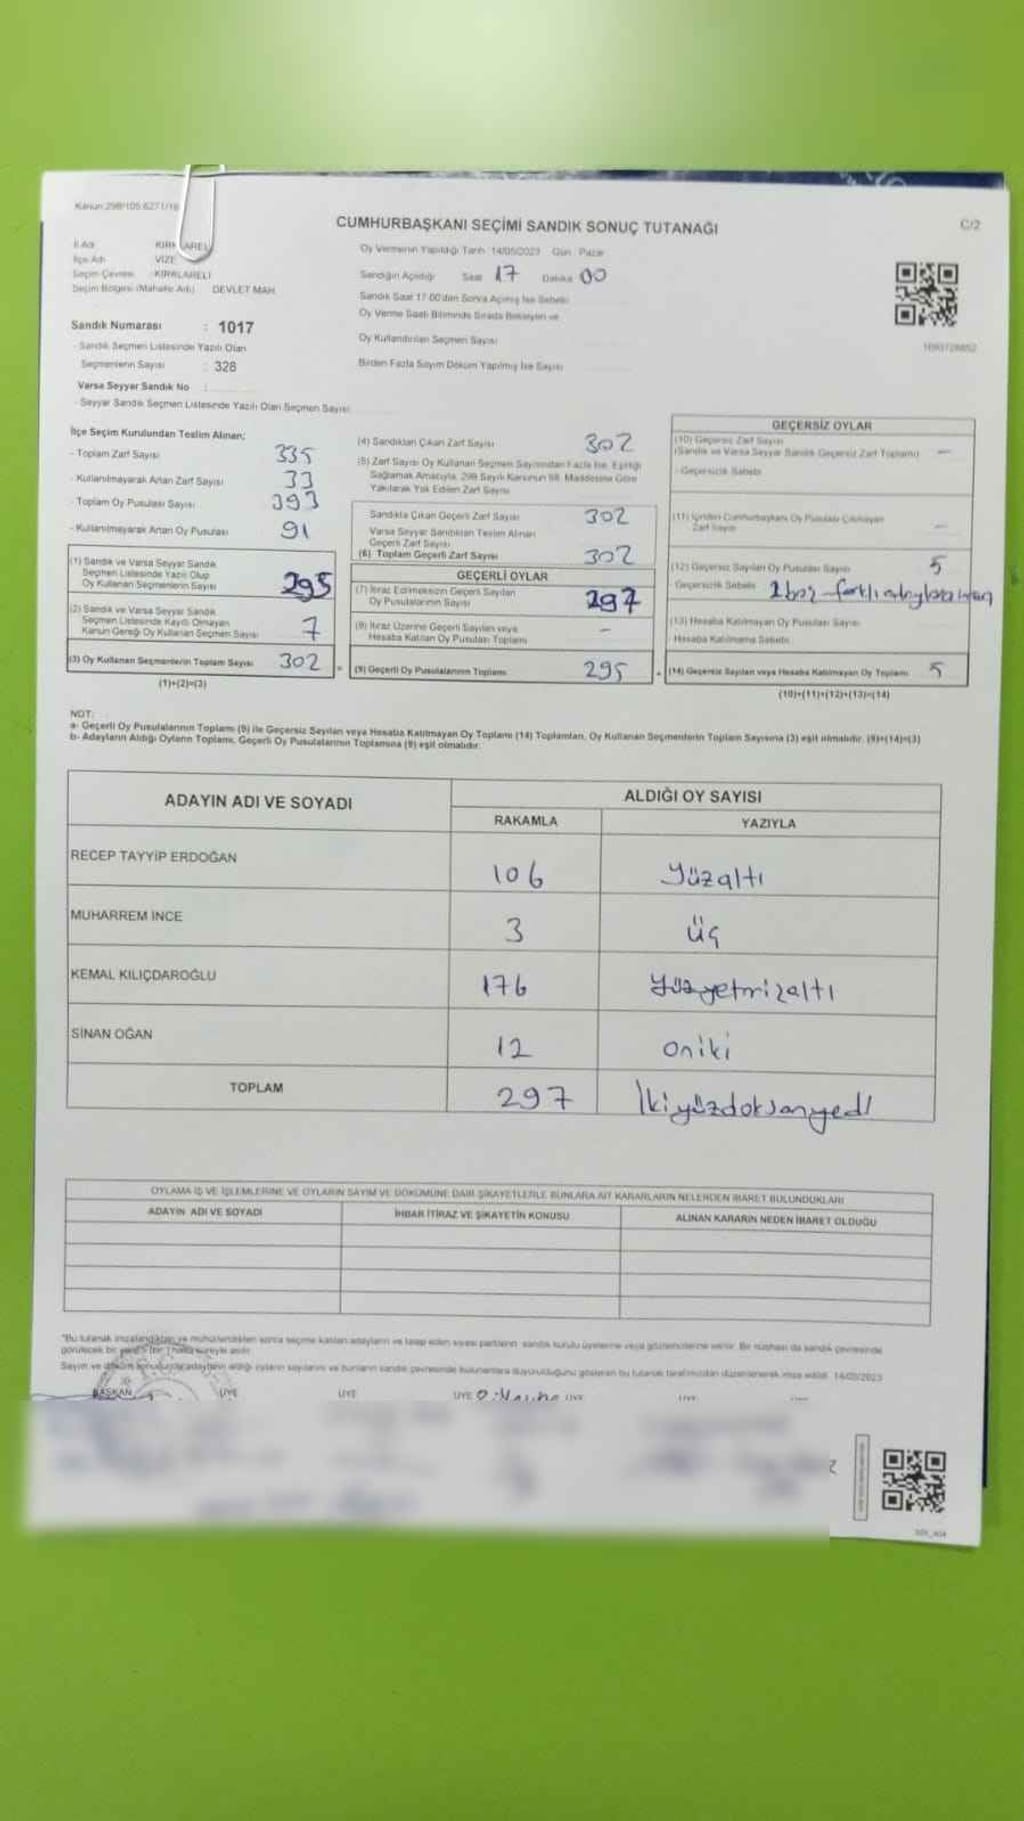 Kanun:298/105 6271/16
CUMHURBAŞKANI SEÇİMİ SANDIK SONUÇ TUTANAĞI
C/2
İl Adı KIRKLARELİ
İlçe Adı VİZE
Seçim Çevresi KIRKLARELİ
Seçim Bölgesi (Mahalle Adı) DEVLET MAH.
Sandık Numarası : 1017
- Sandık Seçmen Listesinde Yazılı Olan
Seçmenlerin Sayısı : 328
Varsa Seyyar Sandık No :
- Seyyar Sandık Seçmen Listesinde Yazılı Olan Seçmen Sayısı
Oy Vermenin Yapıldığı Tarih 14/05/2023 Gün : Pazar
Sandığın Açıldığı Saat 17 Dakika 00
Sandık Saat 17:00'dan Sonra Açılmış İse Sebebi
Oy Verme Saati Bitiminde Sırada Bekleyen ve
Oy Kullandırılan Seçmen Sayısı
Birden Fazla Sayım Döküm Yapılmış İse Sayısı
İlçe Seçim Kurulundan Teslim Alınan;
- Toplam Zarf Sayısı 335
- Kullanılmayarak Artan Zarf Sayısı 33
- Toplam Oy Pusulası Sayısı 393
- Kullanılmayarak Artan Oy Pusulası 91
(1) Sandık ve Varsa Seyyar Sandık
Seçmen Listesinde Yazılı Olup
Oy Kullanan Seçmenlerin Sayısı 295
(2) Sandık ve Varsa Seyyar Sandık
Seçmen Listesinde Kayıtlı Olmayan
Kanun Gereği Oy Kullanan Seçmen Sayısı 7
(3) Oy Kullanan Seçmenlerin Toplam Sayısı 302
(1)+(2)=(3)
(4) Sandıktan Çıkan Zarf Sayısı 302
(5) Zarf Sayısı Oy Kullanan Seçmen Sayısından Fazla İse, Eşitliği
Sağlamak Amacıyla, 298 Sayılı Kanunun 98. Maddesine Göre
Yakılarak Yok Edilen Zarf Sayısı
Sandıkta Çıkan Geçerli Zarf Sayısı 302
Varsa Seyyar Sandıktan Teslim Alınan
Geçerli Zarf Sayısı
(6) Toplam Geçerli Zarf Sayısı 302
GEÇERLİ OYLAR
(7) İtiraz Edilmeksizin Geçerli Sayılan
Oy Pusulalarının Sayısı 297
(8) İtiraz Üzerine Geçerli Sayılan veya
Hesaba Katılan Oy Pusulası Toplamı -
(9) Geçerli Oy Pusulalarının Toplamı 295
GEÇERSİZ OYLAR
(10) Geçersiz Zarf Sayısı
(Sandık ve Varsa Seyyar Sandık Geçersiz Zarf Toplamı) -
Geçersizlik Sebebi
(11) İçinden Cumhurbaşkanı Oy Pusulası Çıkmayan
Zarf Sayısı -
(12) Geçersiz Sayılan Oy Pusulası Sayısı 5
Geçersizlik Sebebi
(13) Hesaba Katılmayan Oy Pusulası Sayısı
Hesaba Katılmama Sebebi
(14) Geçersiz Sayılan veya Hesaba Katılmayan Oy Toplamı 5
(10)+(11)+(12)+(13)=(14)
NOT:
a- Geçerli Oy Pusulalarının Toplamı (9) ile Geçersiz Sayılan veya Hesaba Katılmayan Oy Toplamı (14) Toplamları, Oy Kullanan Seçmenlerin Toplam Sayısına (3) eşit olmalıdır. (9)+(14)=(3)
b- Adayların Aldığı Oyların Toplamı, Geçerli Oy Pusulalarının Toplamına (9) eşit olmalıdır.
ADAYIN ADI VE SOYADI
ALDIĞI OY SAYISI
RAKAMLA YAZIYLA
RECEP TAYYİP ERDOĞAN 106 Yüzaltı
MUHARREM İNCE 3 Üç
KEMAL KILIÇDAROĞLU 176 Yüzyetmişaltı
SİNAN OĞAN 12 oniki
TOPLAM 297 İkiyüzdoksanyedi
OYLAMA İŞ VE İŞLEMLERİNE VE OYLARIN SAYIM VE DÖKÜMÜNE DAİR ŞİKAYETLERLE BUNLARA AİT KARARLARIN NELERDEN İBARET BULUNDUKLARI
ADAYIN ADI VE SOYADI İHBAR İTİRAZ VE ŞİKAYETİN KONUSU ALINAN KARARIN NEDEN İBARET OLDUĞU
"Bu tutanak imzalandıktan ve mühürlendikten sonra seçime katılan adayların ve talep eden siyasi partilerin sandık kurulu üyelerine veya gözlemcilerine verilir. Bir nüshası da sandık çevresinde
görülecek bir yere asılır.
Sayım ve döküm sonucunda adayların aldığı oyların sayılarını ve bunların sandık çevresinde bulunanlara duyurulduğunu gösteren bu tutanak tarafımızdan düzenlenerek imza edildi. 14/05/2023
BAŞKAN ÜYE ÜYE ÜYE ÜYE